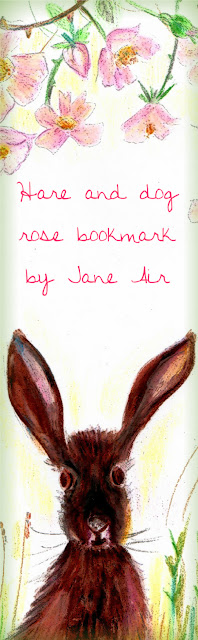 Hare and dog
rose bookmark
by Jane Air